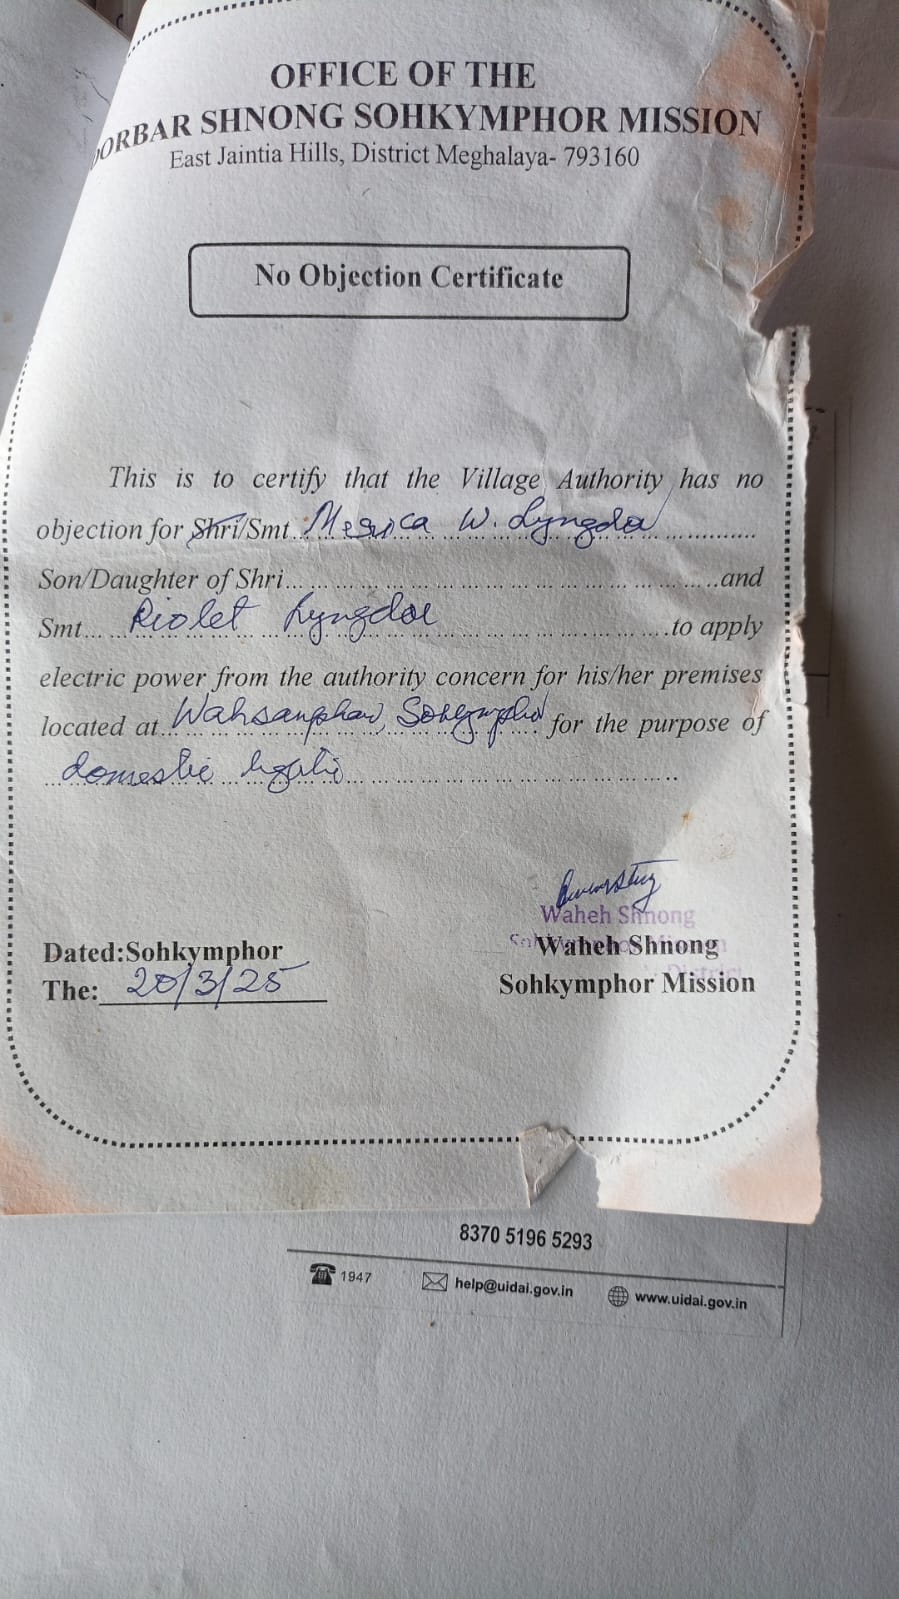 OFFICE OF THE
DORBAR SHNONG SOHKYMPHOR MISSION
East Jaintia Hills, District Meghalaya- 793160
No Objection Certificate
This is to certify that the Village Authority has no
objection for Shri/Smt. W. Lyngdoh
Son/Daughter of Shri... and
Smt... Riolet Lyngdoh to apply
electric power from the authority concern for his/her premises
located at Sohkymphor for the purpose of
domestic
Waheh Shnong
Dated:Sohkymphor
Waheh Shnong
The: 20/3/25
Sohkymphor Mission
8370 5196 5293
1947
help@uidai.gov.in
www.uidai.gov.in